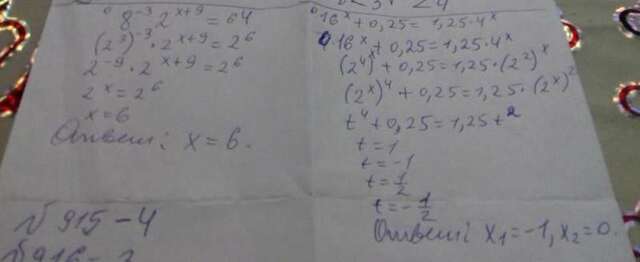 8⁻³ 2ˣ⁺⁹ = 64
(2³)⁻³ · 2ˣ⁺⁹ = 2⁶
2⁻⁹ · 2ˣ⁺⁹ = 2⁶
2ˣ = 2⁶
x = 6
Ответ: x = 6.
№ 915 – 4
16ˣ + 0,25 = 1,25 · 4ˣ
16ˣ + 0,25 = 1,25 · 4ˣ
(2⁴)ˣ + 0,25 = 1,25 · (2²)ˣ
(2ˣ)⁴ + 0,25 = 1,25 · (2ˣ)²
t⁴ + 0,25 = 1,25 t²
t = 1
t = -1
t = 1/2
t = -1/2
Ответ: x₁ = -1, x₂ = 0.